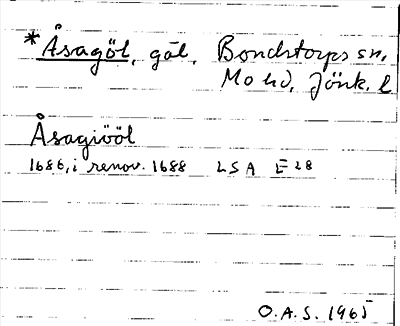 *Åsagöl, göl, Bondstorps sn,
Mo hd, Jönk. l
Åsagiööl
1686, i renov. 1688 LSA E 28
O.A.S. 1965